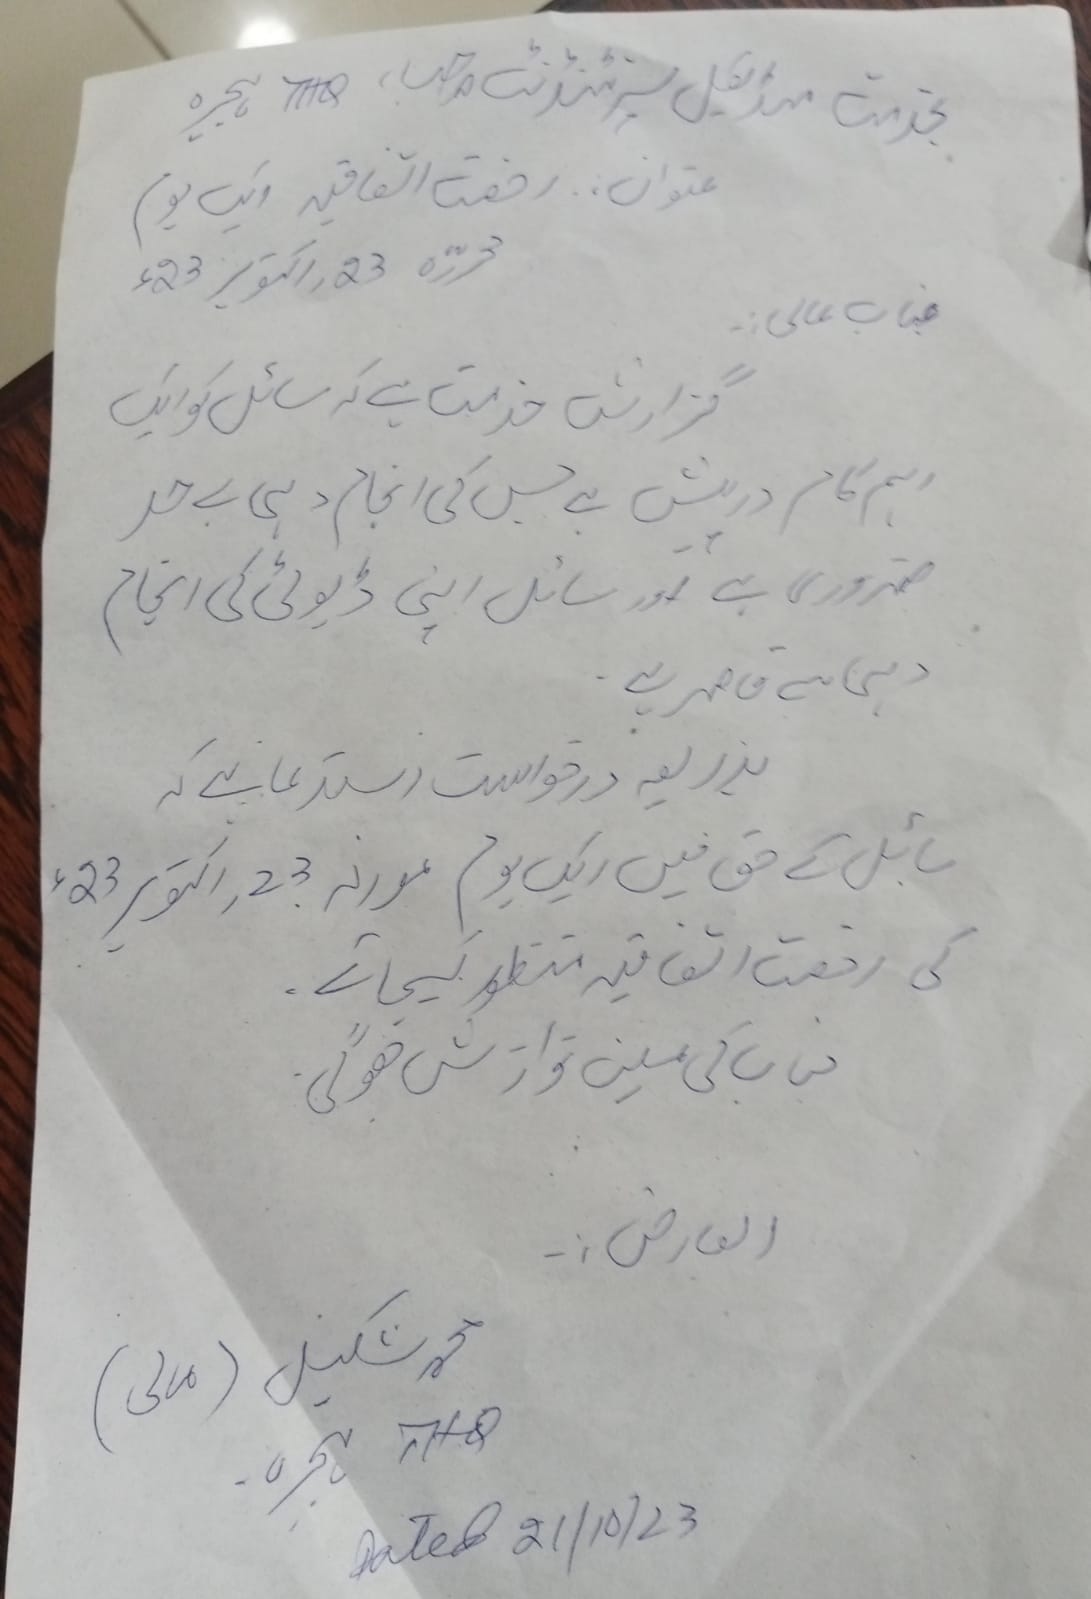 بخدمت میڈیکل سپرنٹنڈنٹ صاحب، THQ ہجیرہ
عنوان:۔ رخصت اتفاقیہ ایک یوم
محررہ 23 اکتوبر 23ء
جناب عالی:۔
گزارش خدمت ہے کہ سائل کو ایک
اہم کام درپیش ہے جس کی انجام دہی بے حد
ضروری ہے اور سائل اپنی ڈیوٹی کی انجام
دہی سے قاصر ہے۔
بذریعہ درخواست استدعا ہے کہ
سائل کے حق میں ایک یوم مورخہ 23 اکتوبر 23ء
کی رخصت اتفاقیہ منظور کیجائے۔
جناب کی عین نوازش ہوگی۔
العارض:۔
محمد شکیل (مالی)
THQ ہجیرہ۔
Dated 21/10/23